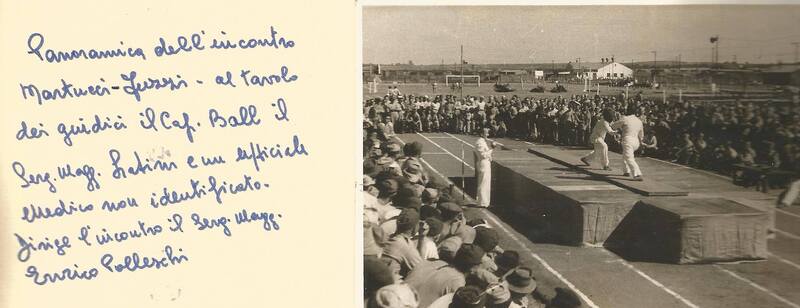 Panoramica dell'incontro
Martucci-Ferresi - al tavolo
dei giudici il Cap. Ball il
Serg. Magg. Fratini e un ufficiale
Medico non identificato.
Dirige l'incontro il Serg. Magg.
Enrico Polleschi